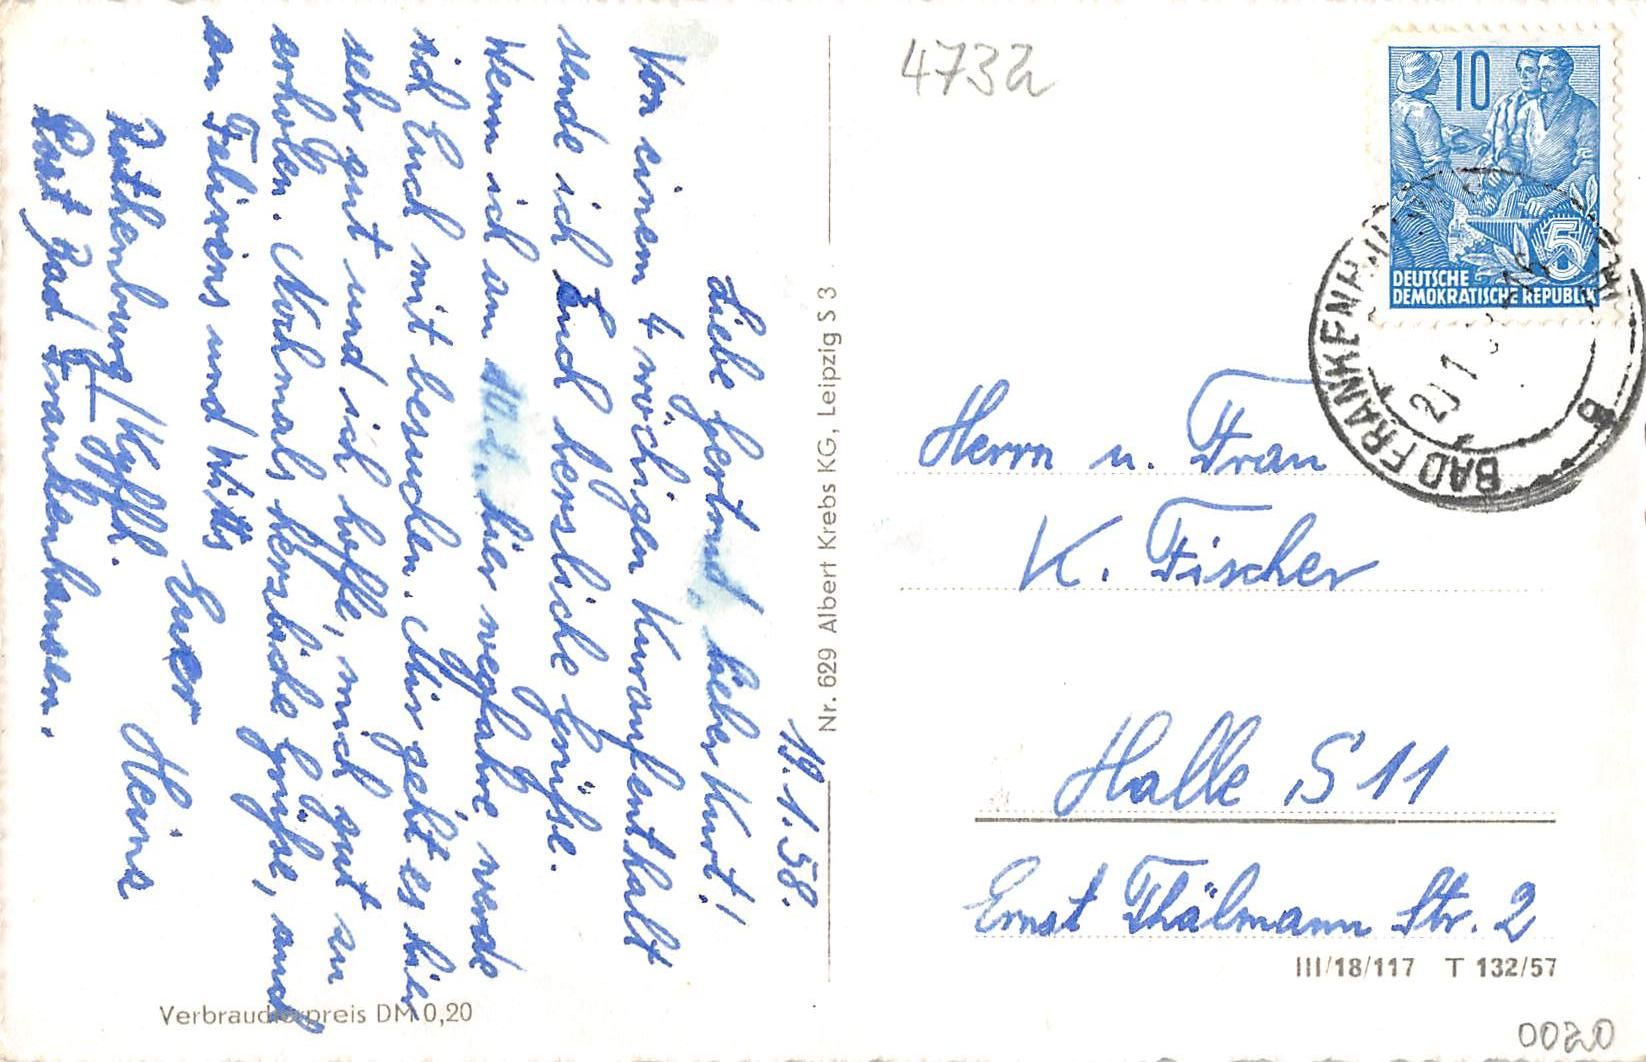 19.1.58.
Liebe Gertrud, lieber Kurt!
Von einem 4 wöchigen Kuraufenthalt
sende ich Euch herzliche Grüße.
Wenn ich am hier wegfahre, werde
ich Euch mit besuchen. Mir geht es hier
sehr gut und ich hoffe, mich gut zu
erholen. Nochmals herzliche Grüße, auch
an Felixens und
Euer Heinz
Rathenburg/Kyffh.
Post Bad Frankenhausen.
Verbraucherpreis DM 0,20
Nr. 629 Albert Krebs KG, Leipzig S 3
4732
10
5
DEUTSCHE
DEMOKRATISCHE REPUBLIK
BAD FRANKENHAUSEN
Herrn u. Frau
K. Fischer
Halle S 11
Ernst Thälmann Str. 2
III/18/117 T 132/57
0020